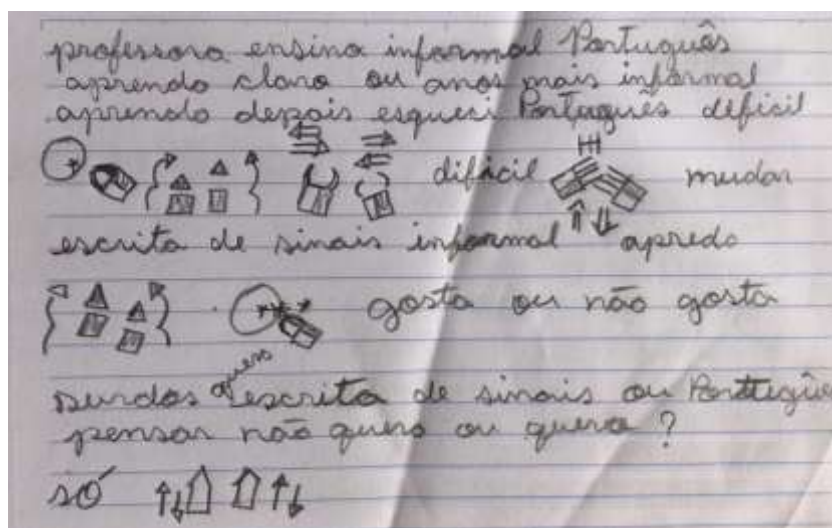 professora ensina informal Português
aprendo claro ou anos mais informal
aprendo depois esqueci Português dificil
difícil mudar
escrita de sinais informal apredo
gosta ou não gosta
quero
surdos escrita de sinais ou
pensar não quero ou quero ?
só